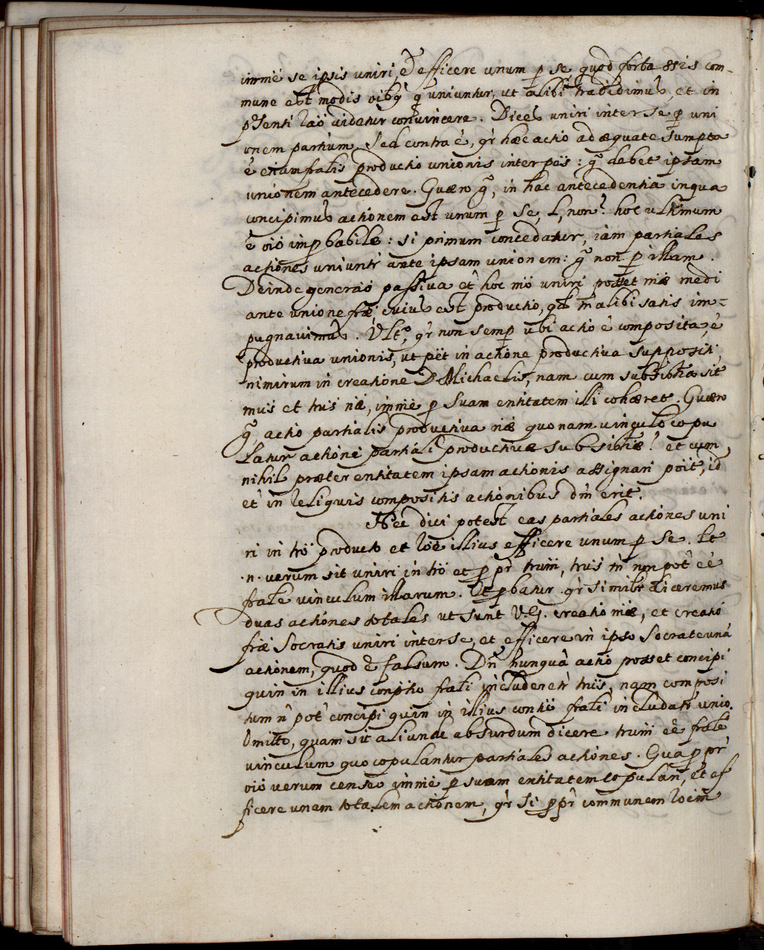 immẽ se ipsis uniri, et efficere unum p se quod forta ssis com-
mune est modis oibq; q̃ uniuntur, ut alibi tradidimus, et in
pñsenti rao videtur convincere. Dices uniri inter se p uni
onem partium. Sed contra ẽ, qr hæc actio adæquate sumpta
ẽ etiam fralis productio unionis inter ptes: g̃ debet ipsam
unionem antecedere. Quæro g̃, in hac antecedentia in qua
concipimus actionem est unum p se, l, non? hoc ultimum
ẽ oĩo improbabile: si primum concedatur, iam partiales
actiones uniuntr̃ ante ipsam unionem: g̃ non p illam.
Deinde generaõ passiva et hoc mõ uniri posset mæ medi
ante unione fræ, cuius est productio, qd tñ alibi satis im-
pugnavimus. Ult.º qr non semp ubi actio ẽ composita, ẽ
productiva unionis, ut pẽt in actione productiva suppositi
nimirum in creatione D. Michaelis, nam cum subsistña sit
mus et trus næ, immẽ p suam entitatem illi cohæret. Quæro
g̃, actio partialis productiva næ quonam vinculo copu
latur actioni partiali productivæ subsistiæ? et cum
nihil præter entitatem ipsam actionis assignari poĩt, id
et in reliquis compositis actionibus dñ erit.
Nec dici potest eas partiales actiones uni
ri in trõ producto et roẽ illius efficere unum p se. Lt
.n. verum sit uniri in trõ et p pr̃ trum, trus tñ nõ pot ẽẽ
frale vinculum illarum. Et pbatur. qr similr diceremus
duas actiones totales ut sunt v.g. creatio mæ, et creatio
fræ Socratis uniri inter se, et efficere in ipso Socrate unã
actionem, quod ẽ falsum. Dñ nunquã actio posset concipi
quin in illius conptu frali includeretr̃ trus, nam composi
tum ñ pot concipi quin in illius contũ frali includatr̃ unio.
Omitto, quam sit aliunde absurdum dicere trum ẽẽ frale
vinculum quo copulantur partiales actiones. Qua p pr̃
oĩo verum censeo immẽ p suam entitatem copulari, et ef
ficere unam totalem actionem, qr si p pr̃ communem roem